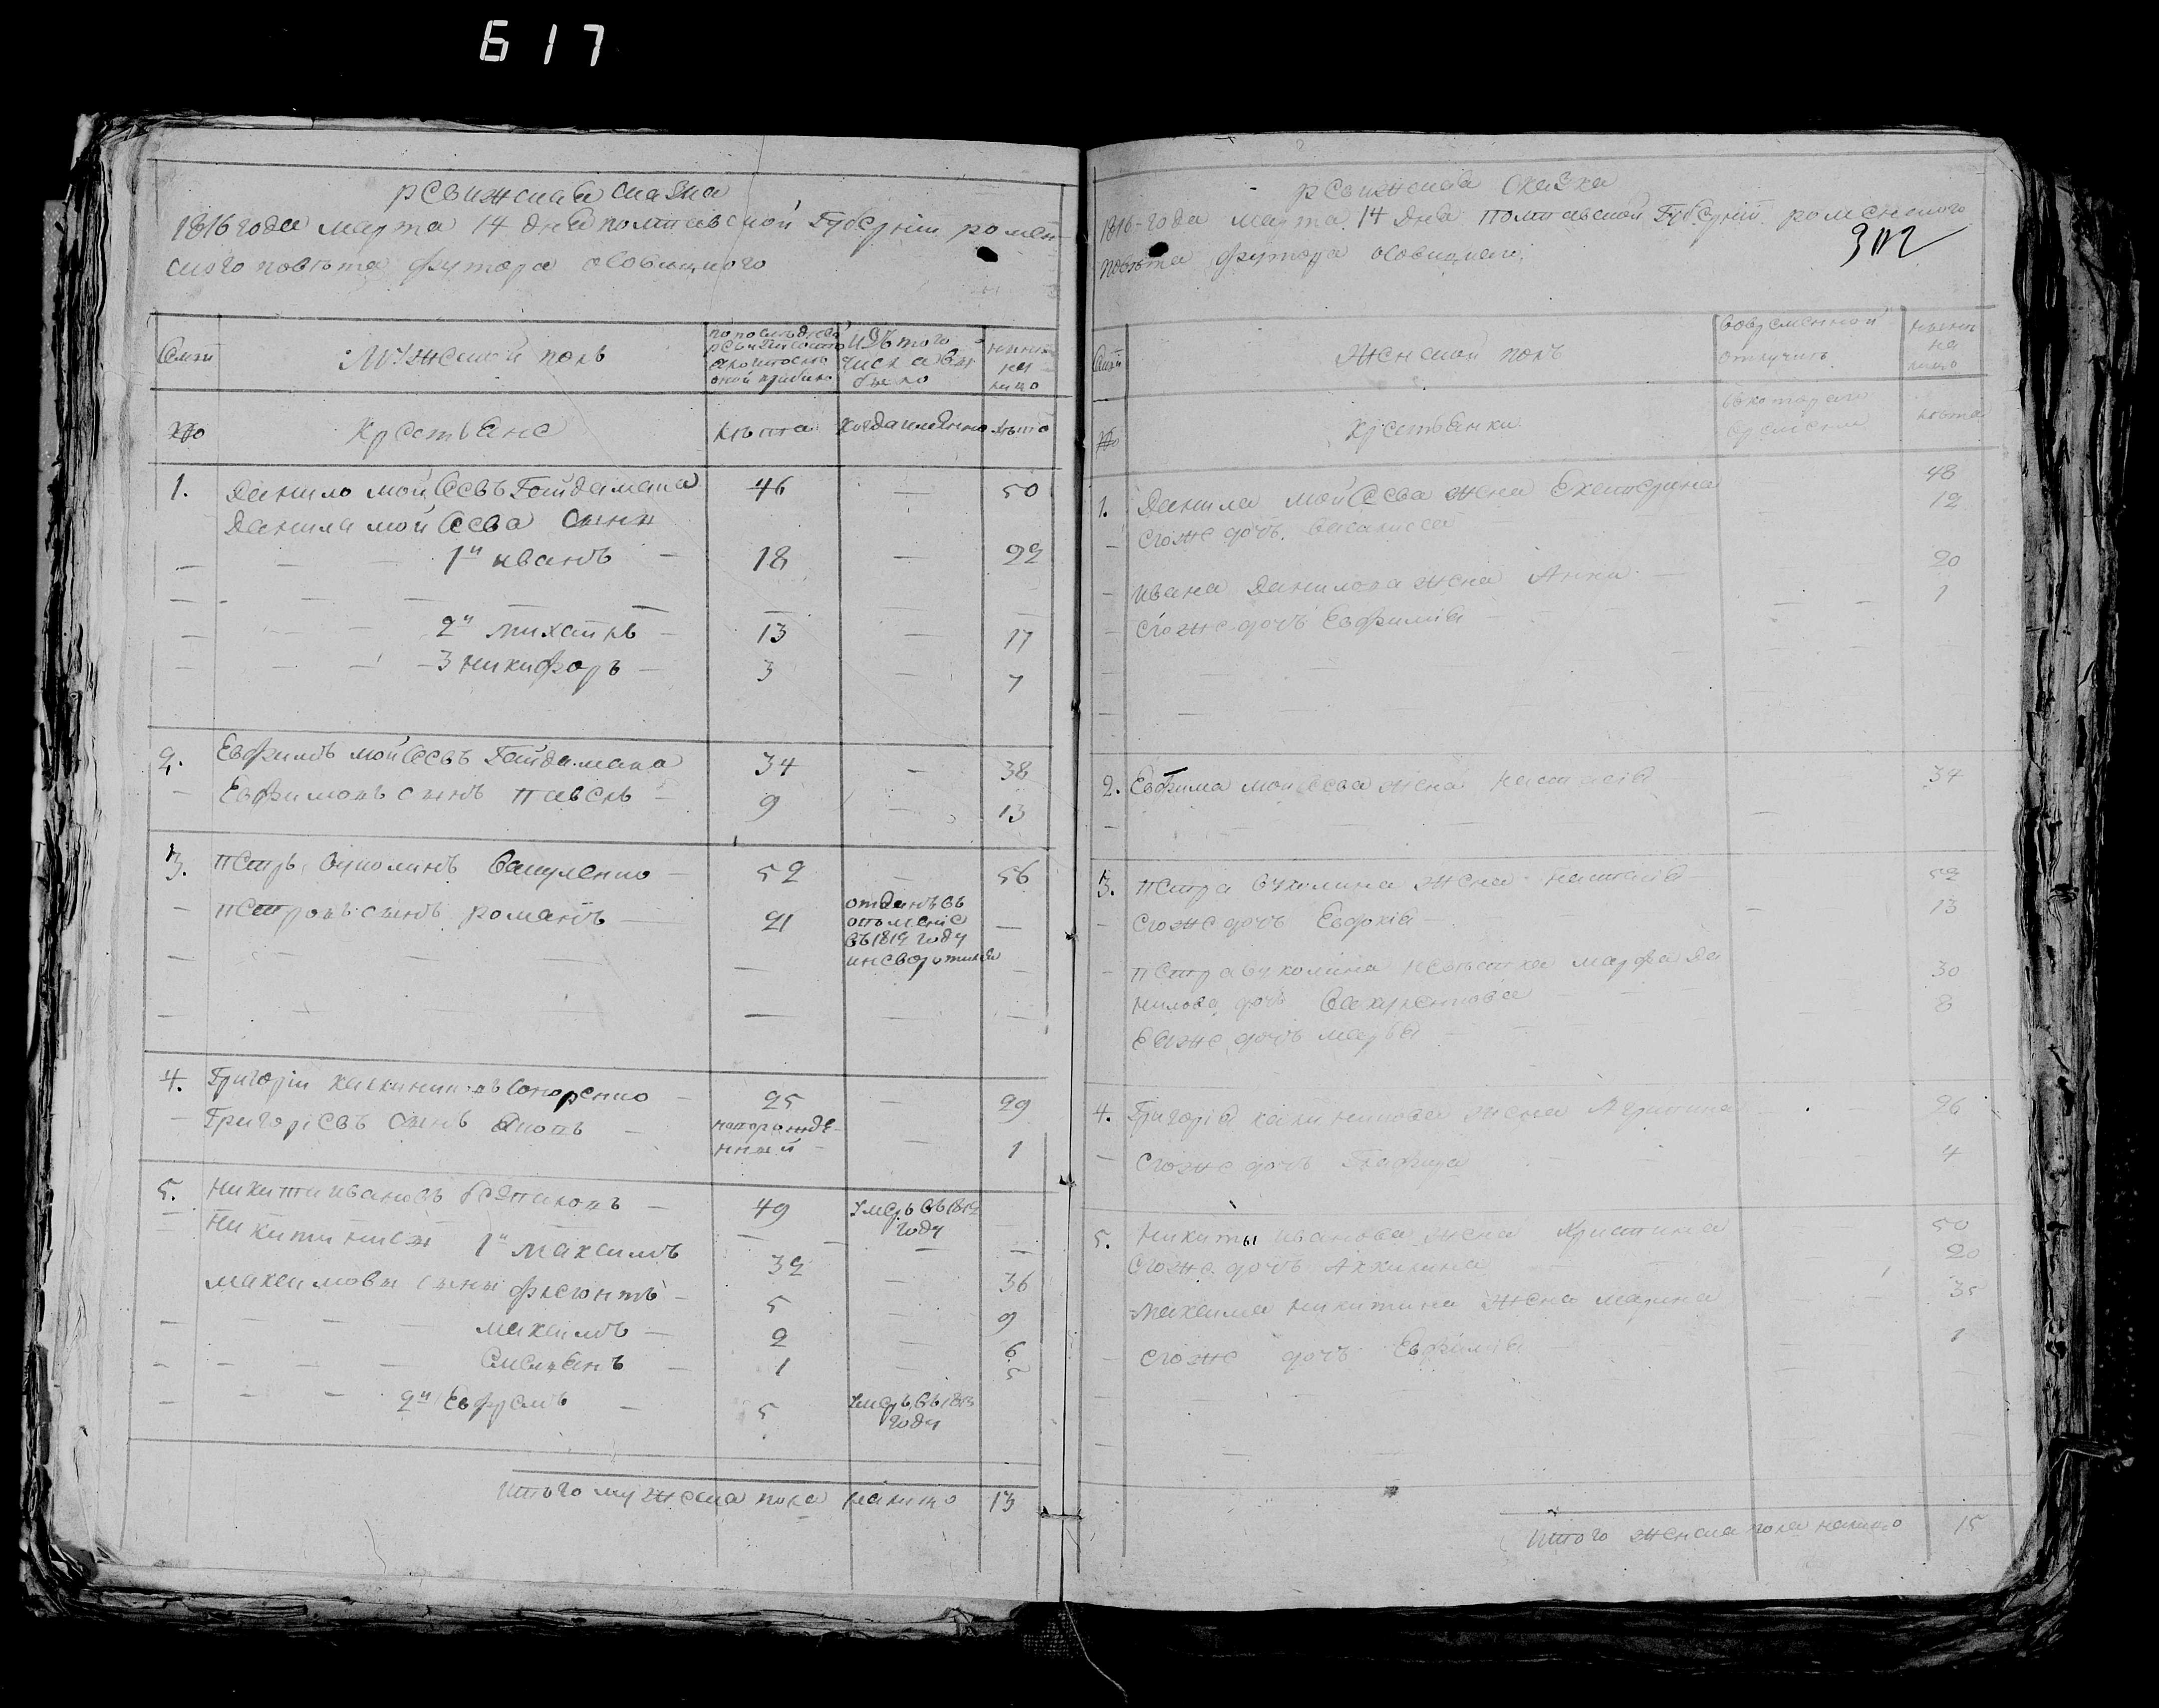 617
ревижская сказка
1816 года марта 14 дня полтавской Губернiи ромен
ского повѣта футора
Мужеской полъ
изъ того
числа вы
было
нынѣ
на
лицо
№о
Крестьяне
лѣта
Когда именно
лѣта
1. Данило мойсеевъ Гайдамака 46 — 50
Данила мойсеева сыны
— — — 1й иванъ — 18 — 22
— — — 2й михайлъ — 13 — 17
— — — 3 никифоръ — 3 — 7
2. Евфимъ мойсеевъ Гайдамака 34 — 38
— Евфимовъ сынъ павелъ — 9 — 13
3. петръ вуколинъ Вакуленко — 52 — 56
— петровъ сынъ романъ — 21
отданъ въ
ополченiе
въ 1812 году
—
4. Григорiй Сопоренко — 25 — 29
— Григорiевъ сынъ — новорожде-
нный — 1
5. Никита ивановъ — 49 умеръ въ 1812
году
1й Максимъ 32 — 36
Максимовы сыны — 5 — 9
— — — — максимъ — 2 — 6
— — — — емельянъ — 1 — 5
— — — 2й Ефремъ — 5 умеръ въ 1813
году
Итого мужеска пола налицо 13
ревижская сказка
1816-года марта 14 дня полтавской Губернiй роменского
312
повѣта футора
женской полъ
во временной
отлучкѣ
нынѣ
на
лицо
№о
Крестьянки
лѣта
1. Данила мойсеева жена Екатерина 48
— егоже дочь василиса 12
— ивана Данилова жена Анна 20
— егоже дочь Евфимiя 1
2. Евфима мойсеева жена настасiя 34
3. петра вуколина жена настасiя 52
— егоже дочь Евдокiя — 13
— петра вуколина невѣстка марфа да
нилова дочь Вакуленкова 30
Еяже дочь марья 8
4. Григорiя калиникова жена Агрипина 26
— егоже дочь 4
5. Никиты иванова жена Христина 50
егоже дочь Акилина 20
максима никитина жена марина 35
— егоже дочь Евфимiя 1
Итого женска пола налицо 15